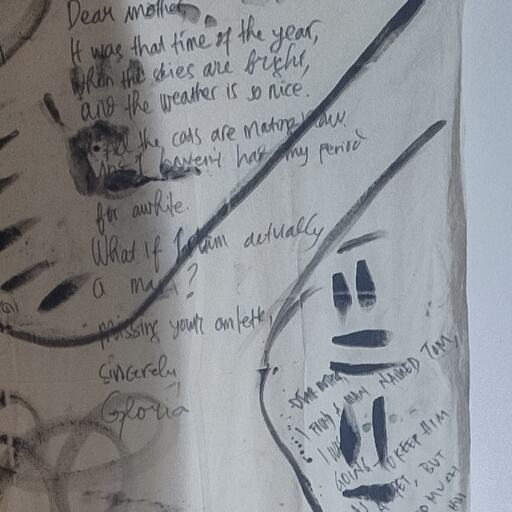 Dear mother,
It was that time of the year,
When the skies are bright,
and the weather is so nice.
the cats are mating now.
I haven't had my period
for awhile.
What if I am actually
a man?
missing your
sincerely,
Gloria
Dear mother,
I found a man NAMED TOM,
I
GOING TO KEEP HIM
PET, BUT
SO MUCH